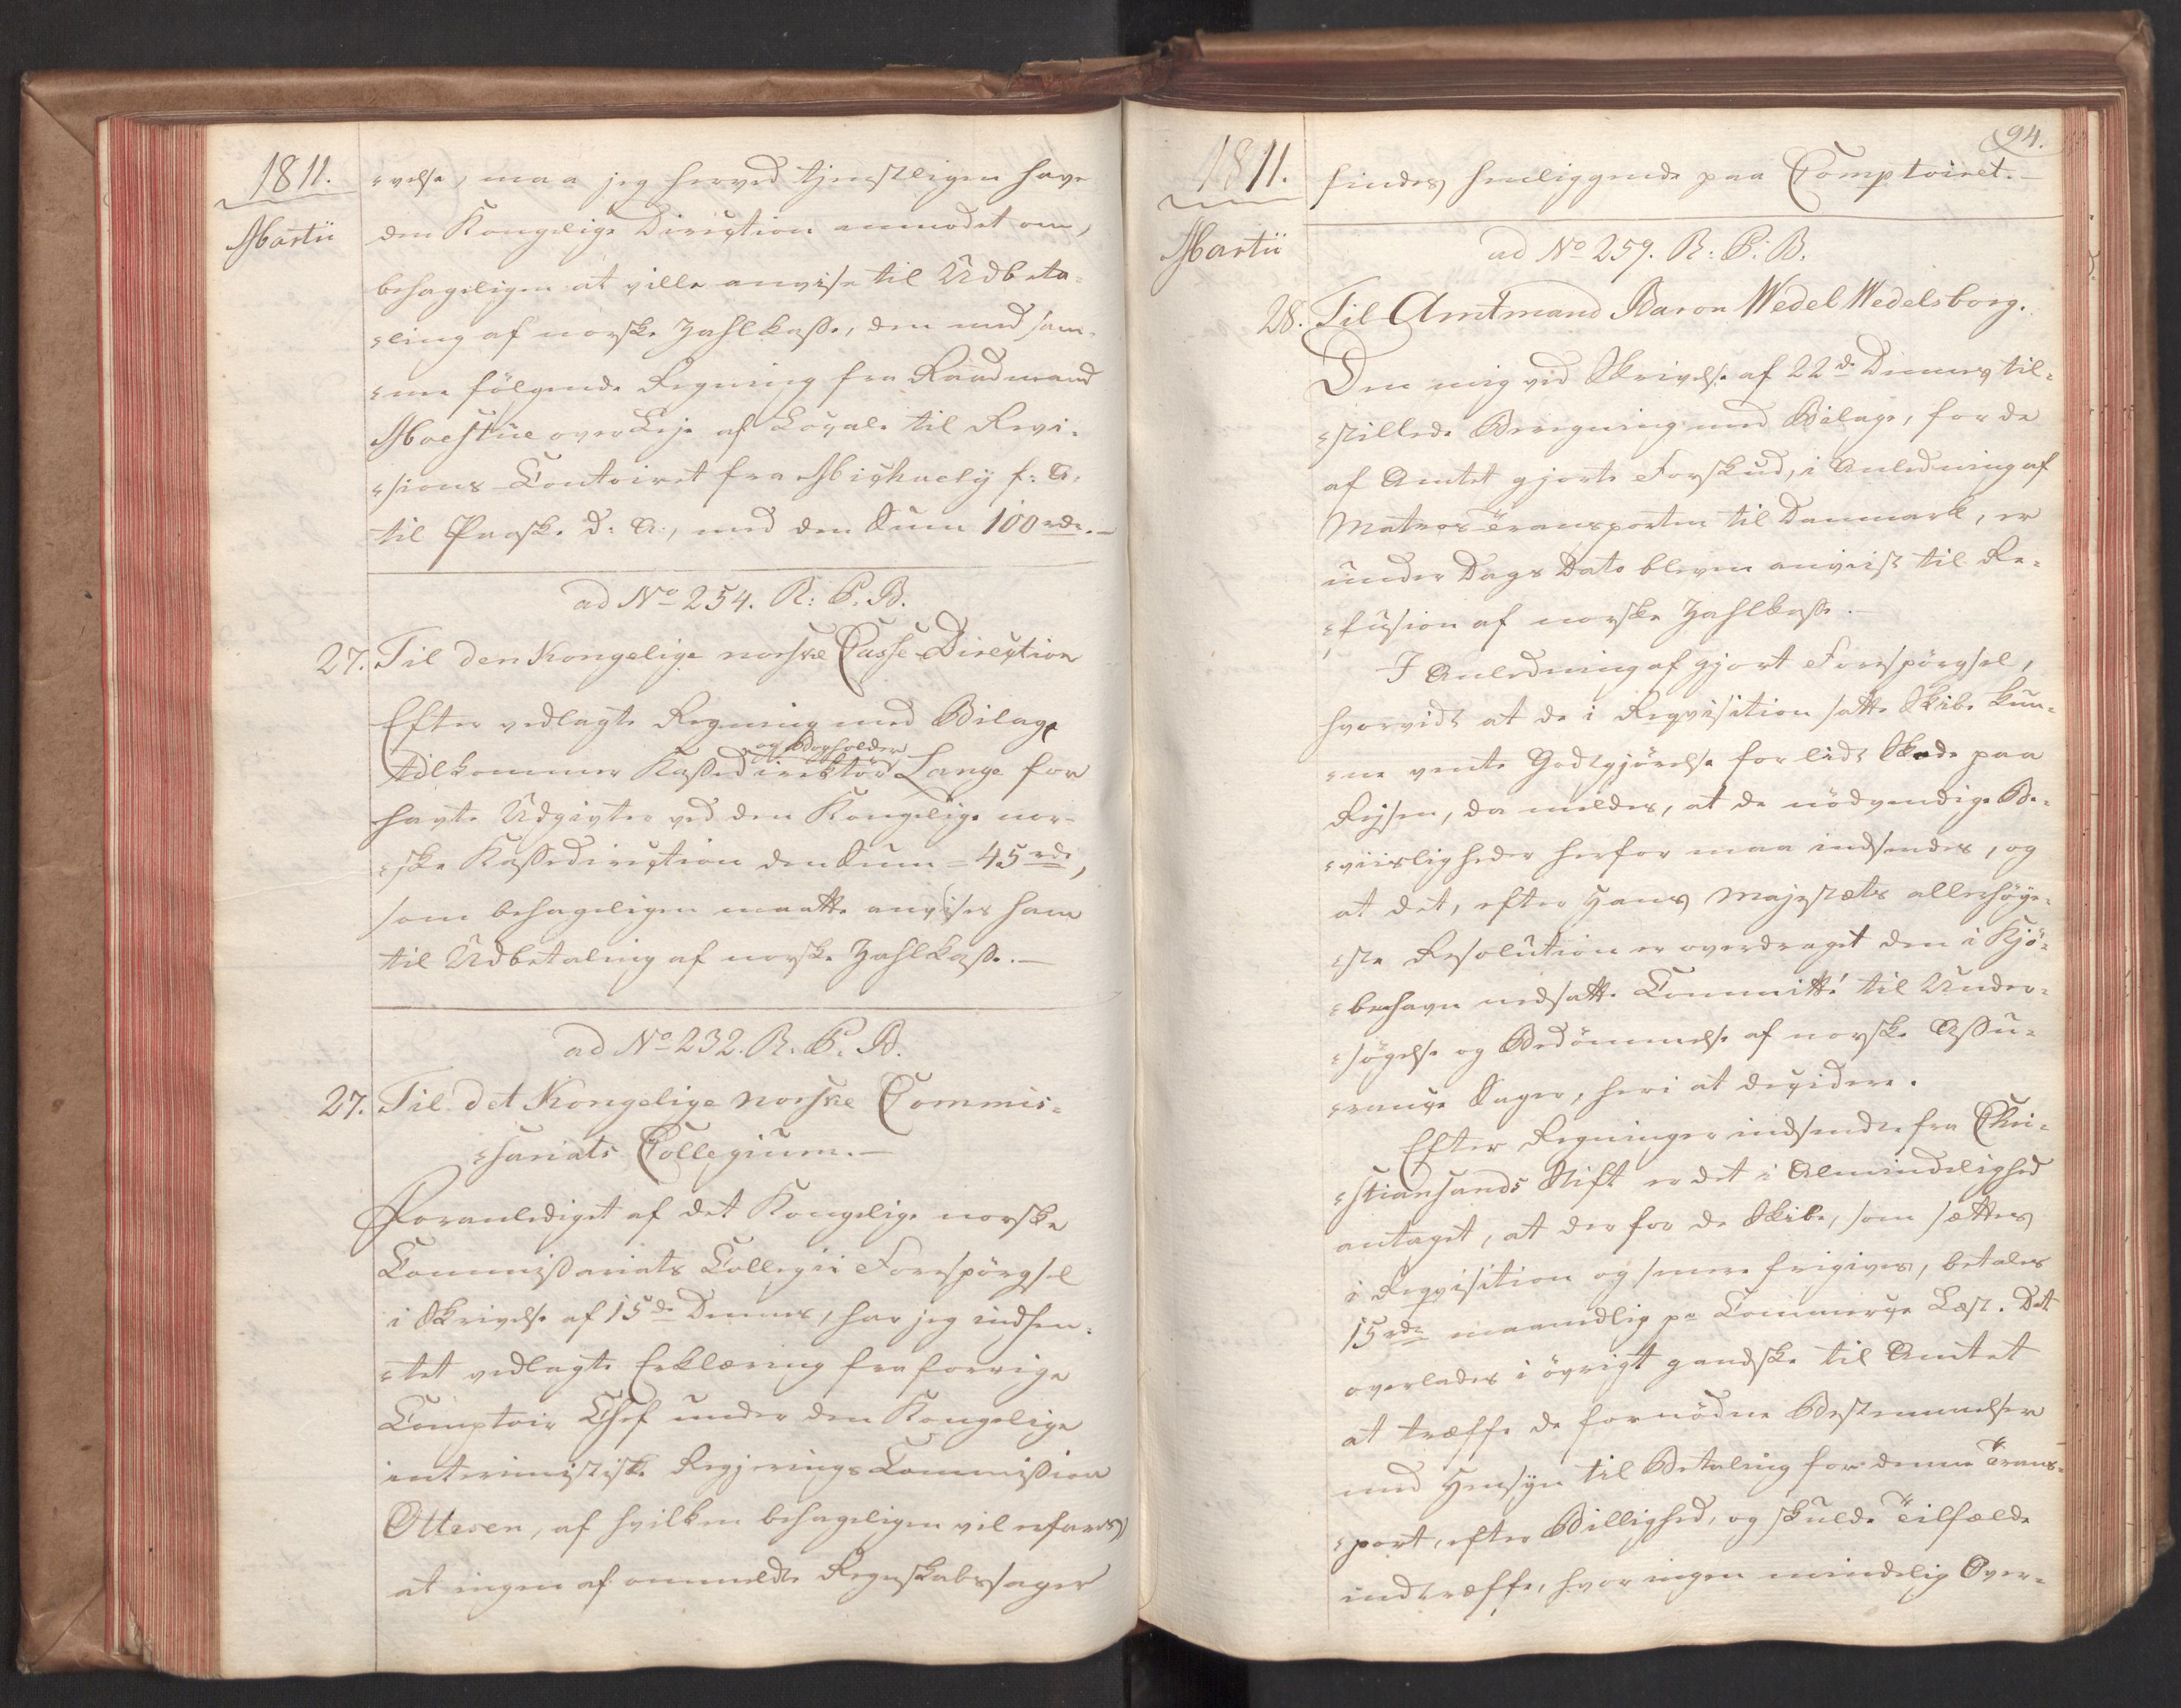 1811.
Martii
velse, maa jeg herved tjenstligen have
den Kongelige Direction anmodet om,
behageligen at ville anvise til Udbeta-
ling af norske Zahlkasse, den med sam-
me følgende Regning fra Raadmand
Moestue over Leje af Locale til Revi-
sions Contoiret fra Michaely f: A:
til Paaske d: A:, med den Sum 100 rdr.
ad No 254. R: P. B.
27. Til den Kongelige norske Casse-Direction
Efter vedlagte Regning med Bilage
og Bogholder
tilkommer Kassedirektør Lange for
havte Udgivter ved den Kongelige nor-
ske Kassedirection den Sum = 45 rdr,
som behageligen maatte anvises ham
til Udbetaling af norske Zahlkasse.
ad No 232. R. P. B.
27. Til det Kongelige norske Commis-
sariats Collegium.
Foranlediget af det Kongelige norske
Commissariats Collegii Forespörgsel
i Skrivelse af 15de Dennes, har jeg indhen-
tet vedlagte Erklæring fra forrige
Comptoir Chef under den Kongelige
interimistiske Regjerings Commission
Ottesen, af hvilken behageligen vil erfares,
at ingen af ommeldte Regnskabssager
94.
1811.
Martii
findes henliggende paa Comptoiret.
ad No 259. R: P: B.
28. Til Amtmand Baron Wedel Wedelsborg.
Den mig ved Skrivelse af 22de Dennes til-
stillede Beregning med Bilage, for de
af Amtet gjorte Forskud, i Anledning af
Matros Transporten til Danmark, er
under Dags Dato bleven anviist til Re-
fusion af norske Zahlkasse.
I Anledning af gjort Forespörgsel,
hvorvidt at de i Reqvisition satte Skibe kun-
ne vente Godtgjörelse for lidt Skade paa
Rejsen, da meldes, at de nödvendige Be-
viisligheder herfor maa indsendes, og
at det, efter Hans Majestæts allerhöye-
ste Resolution er overdraget den i Kjö-
benhavn nedsatte Committé til Under-
sögelse og Bedömmelse af norske Assu-
rance Sager, heri at decidere.
Efter Regninger indsendte fra Chri-
stiansands Stift er det i Almindelighed
antaget, at der for de Skibe, som sættes
i Reqvisition og senere frigives, betales
15 rdr maanedlig pr Commerce Læst. Det
overlades i övrigt gandske til Amtet
at træffe de fornödne Bestemmelser
med Hensyn til Betaling for denne Trans-
port, efter Billighed, og skulde Tilfælde
indtræffe, hvor ingen mindelig Over-